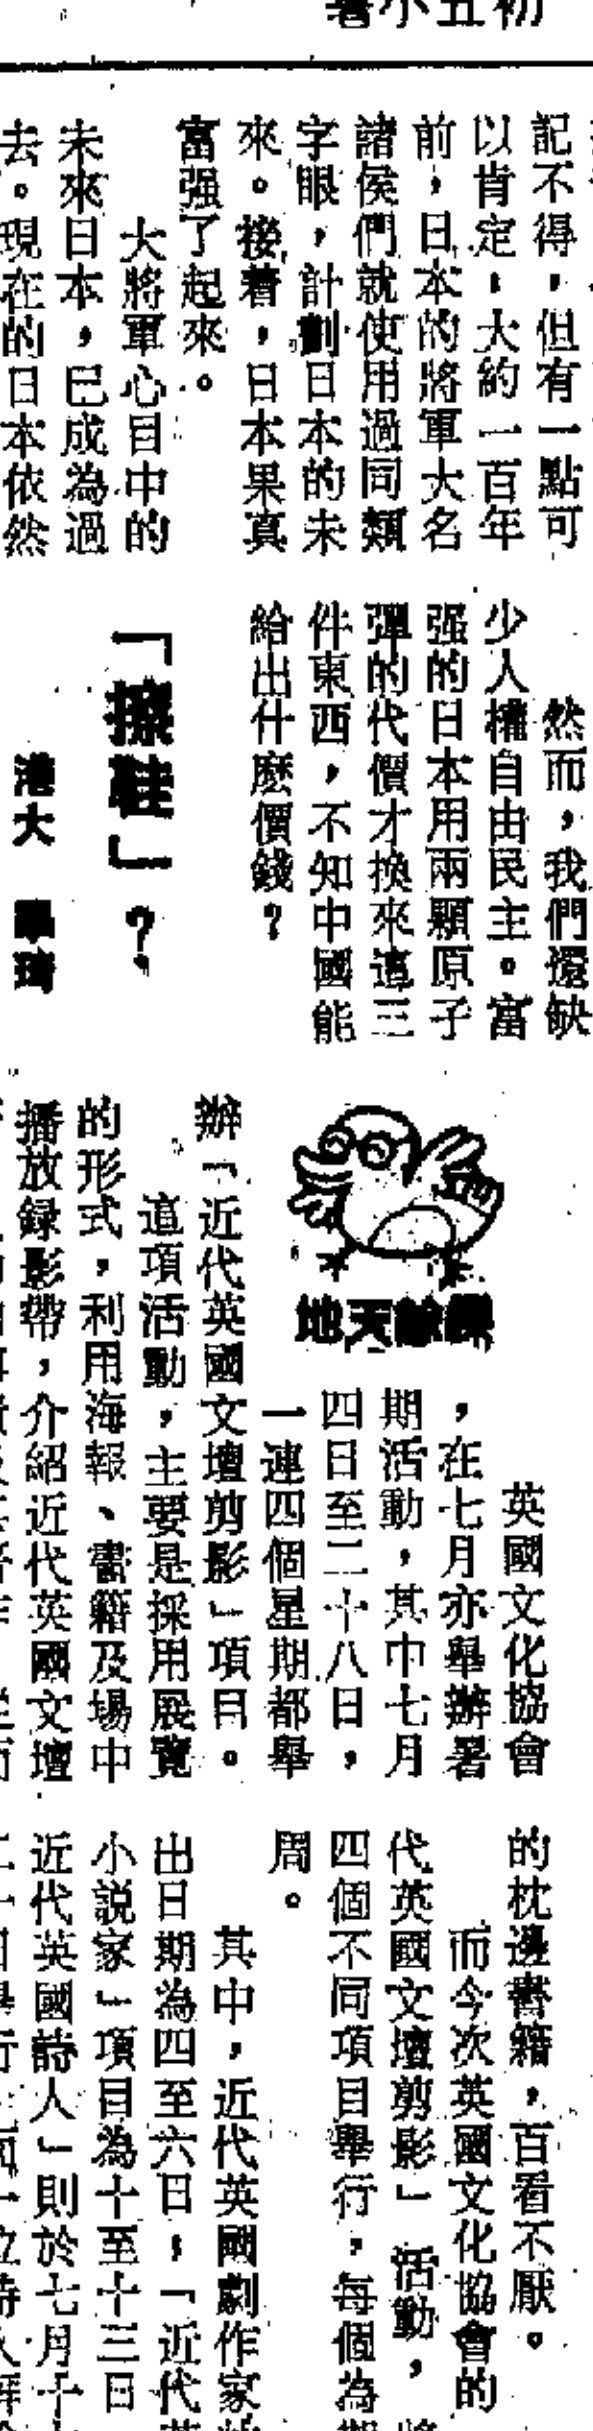 初五小暑
記不得，但有一點可
以肯定，大約一百年
前，日本的將軍大名
諸侯們就使用過同類
字眼，計劃日本的未
來。接着，日本果真
富强了起來。
大將軍心目中的
未來日本，已成為過
去。現在的日本依然
然而，我們還缺
少人權自由民主。富
强的日本用兩顆原子
彈的代價才換來這三
件東西，不知中國能
給出什麽價錢？
「擦鞋」？
港大
課餘天地
英國文化協會
，在七月亦舉辦暑
期活動，其中七月
四日至二十八日，
一連四個星期都舉
辦「近代英國文壇剪影」項目。
這項活動，主要是採用展覽
的形式，利用海報、書籍及場中
播放録影帶，介紹近代英國文壇
的枕邊書籍，百看不厭。
而今次英國文化協會的
代英國文壇剪影」活動，
四個不同項目舉行，每個為
周。
其中，近代英國劇作家
出日期為四至六日，「近代
小説家」項目為十至十三日
近代英國詩人」則於七月十